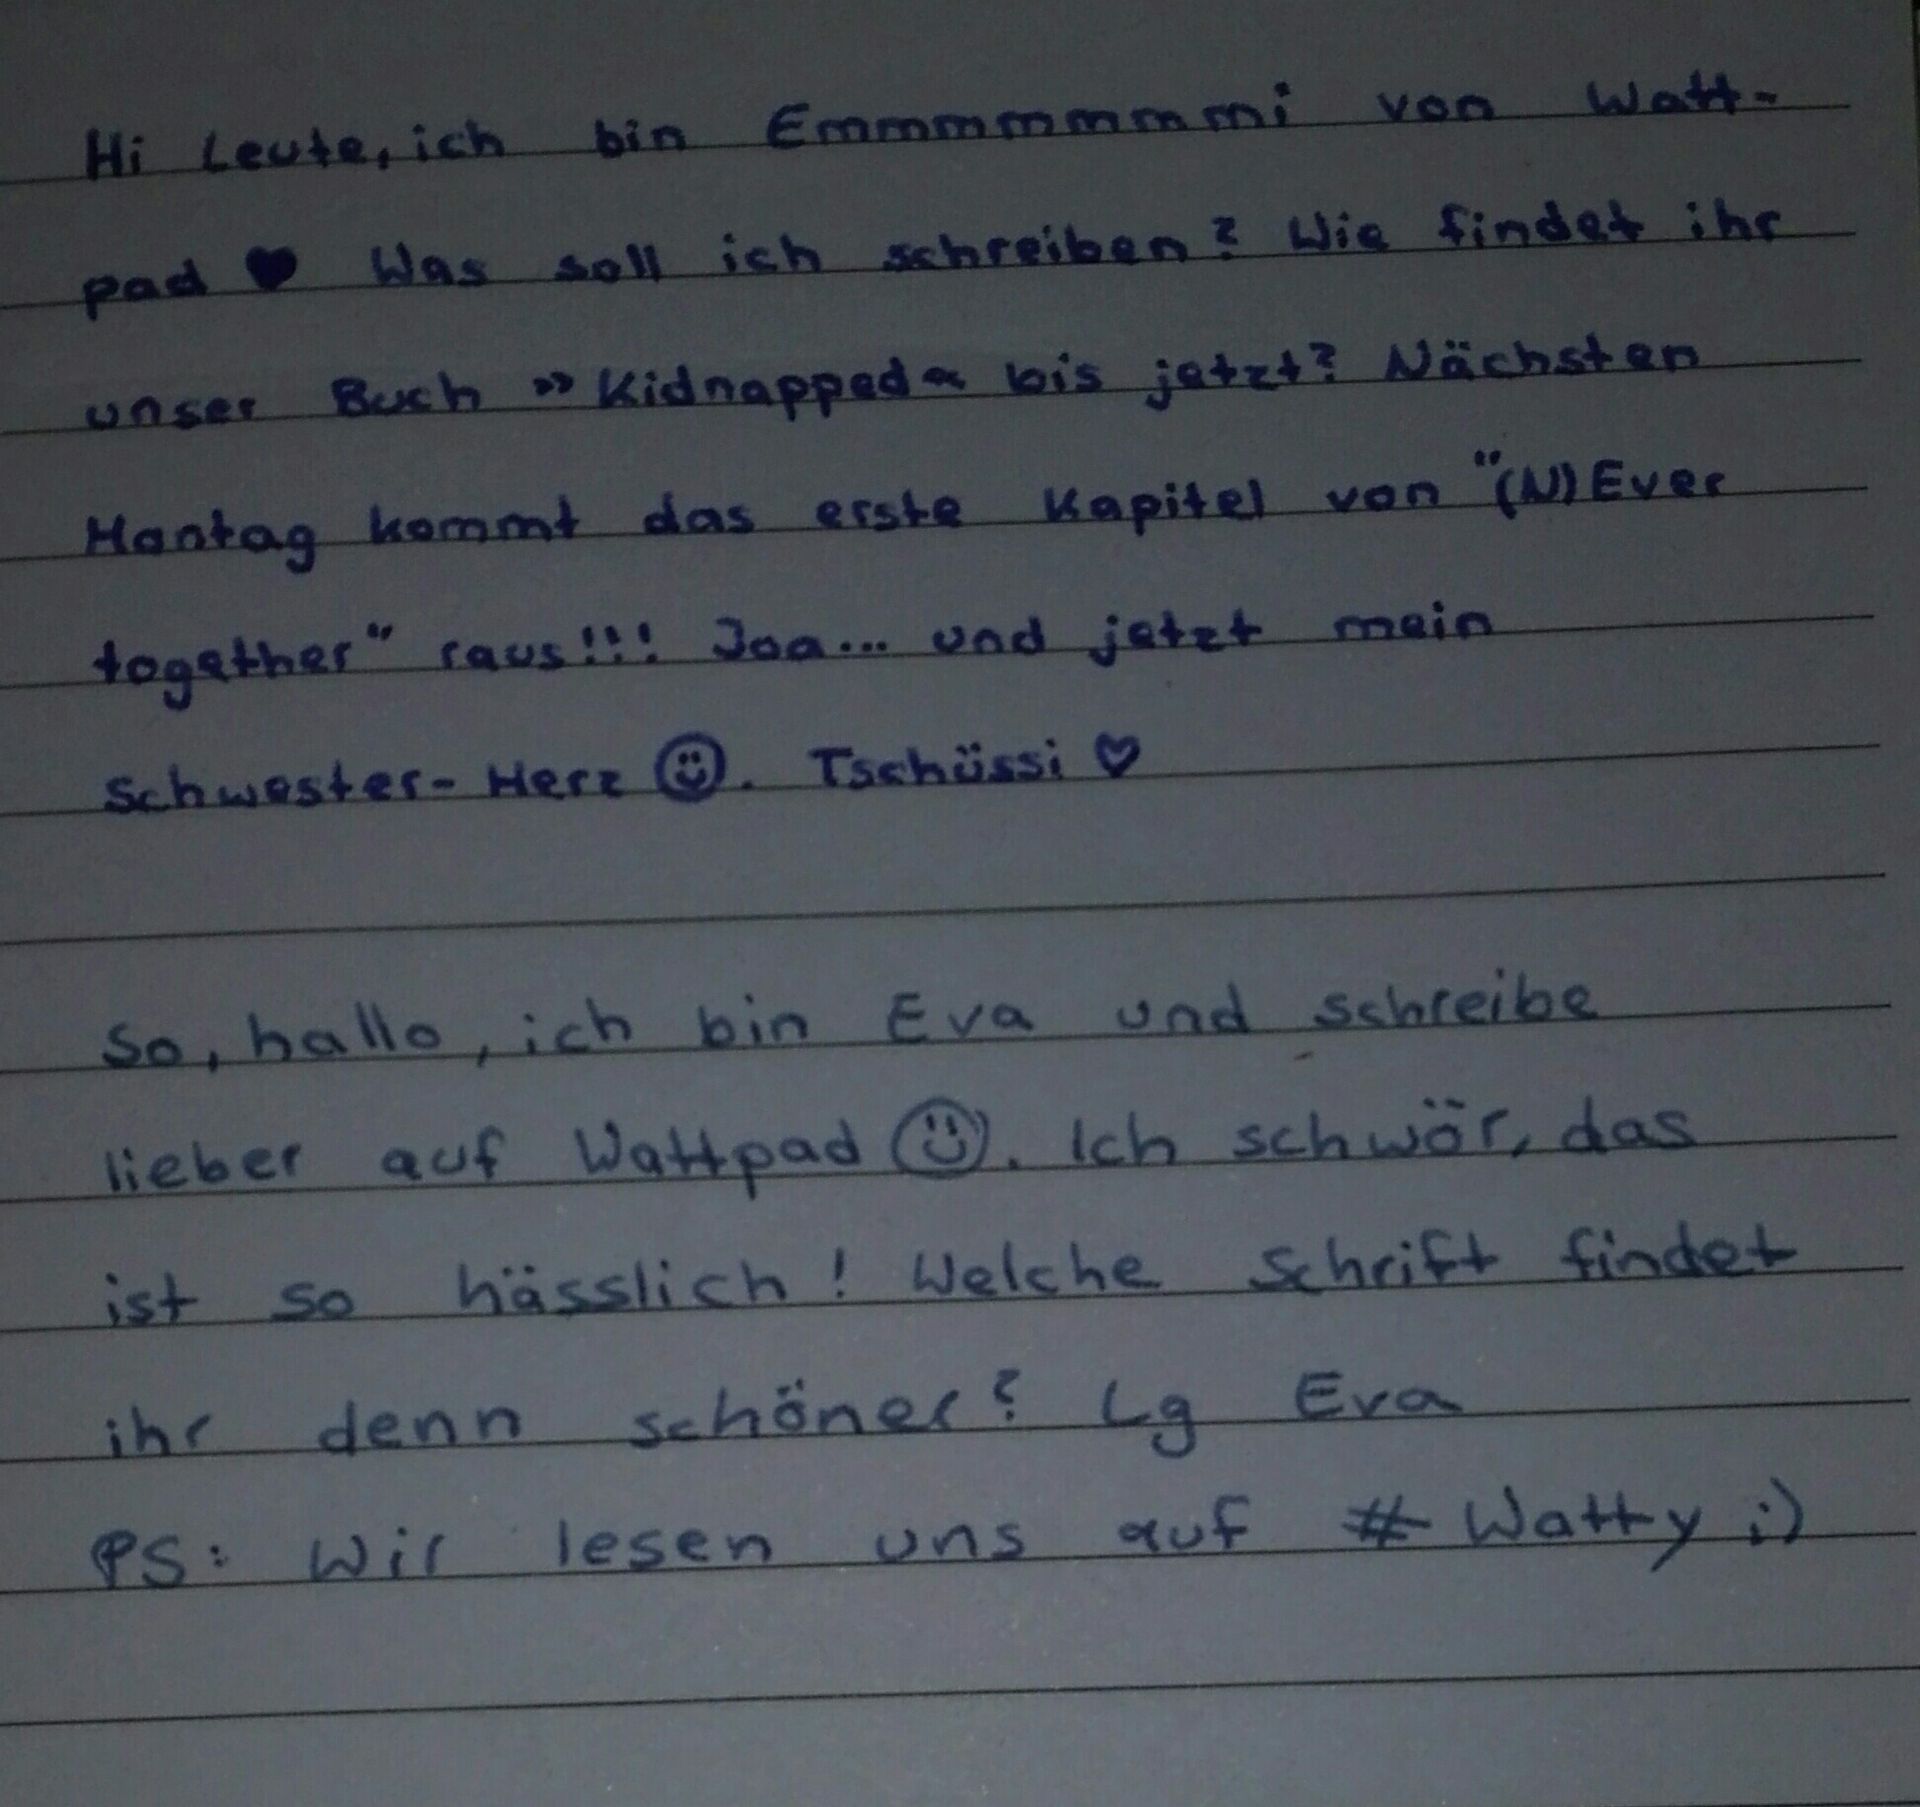 Hi Leute, ich bin Emmmmmmmi von Watt-
pad ♥ Was soll ich schreiben? Wie findet ihr
unser Buch »Kidnapped« bis jetzt? Nächsten
Montag kommt das erste Kapitel von "(N)Ever
together" raus!!! Jaa... und jetzt mein
Schwester-Herz ☺. Tschüssi ♡
So, hallo, ich bin Eva und schreibe
lieber auf Wattpad ☺. Ich schwör, das
ist so hässlich! Welche Schrift findet
ihr denn schöner? Lg Eva
PS: Wir lesen uns auf # Watty ;)